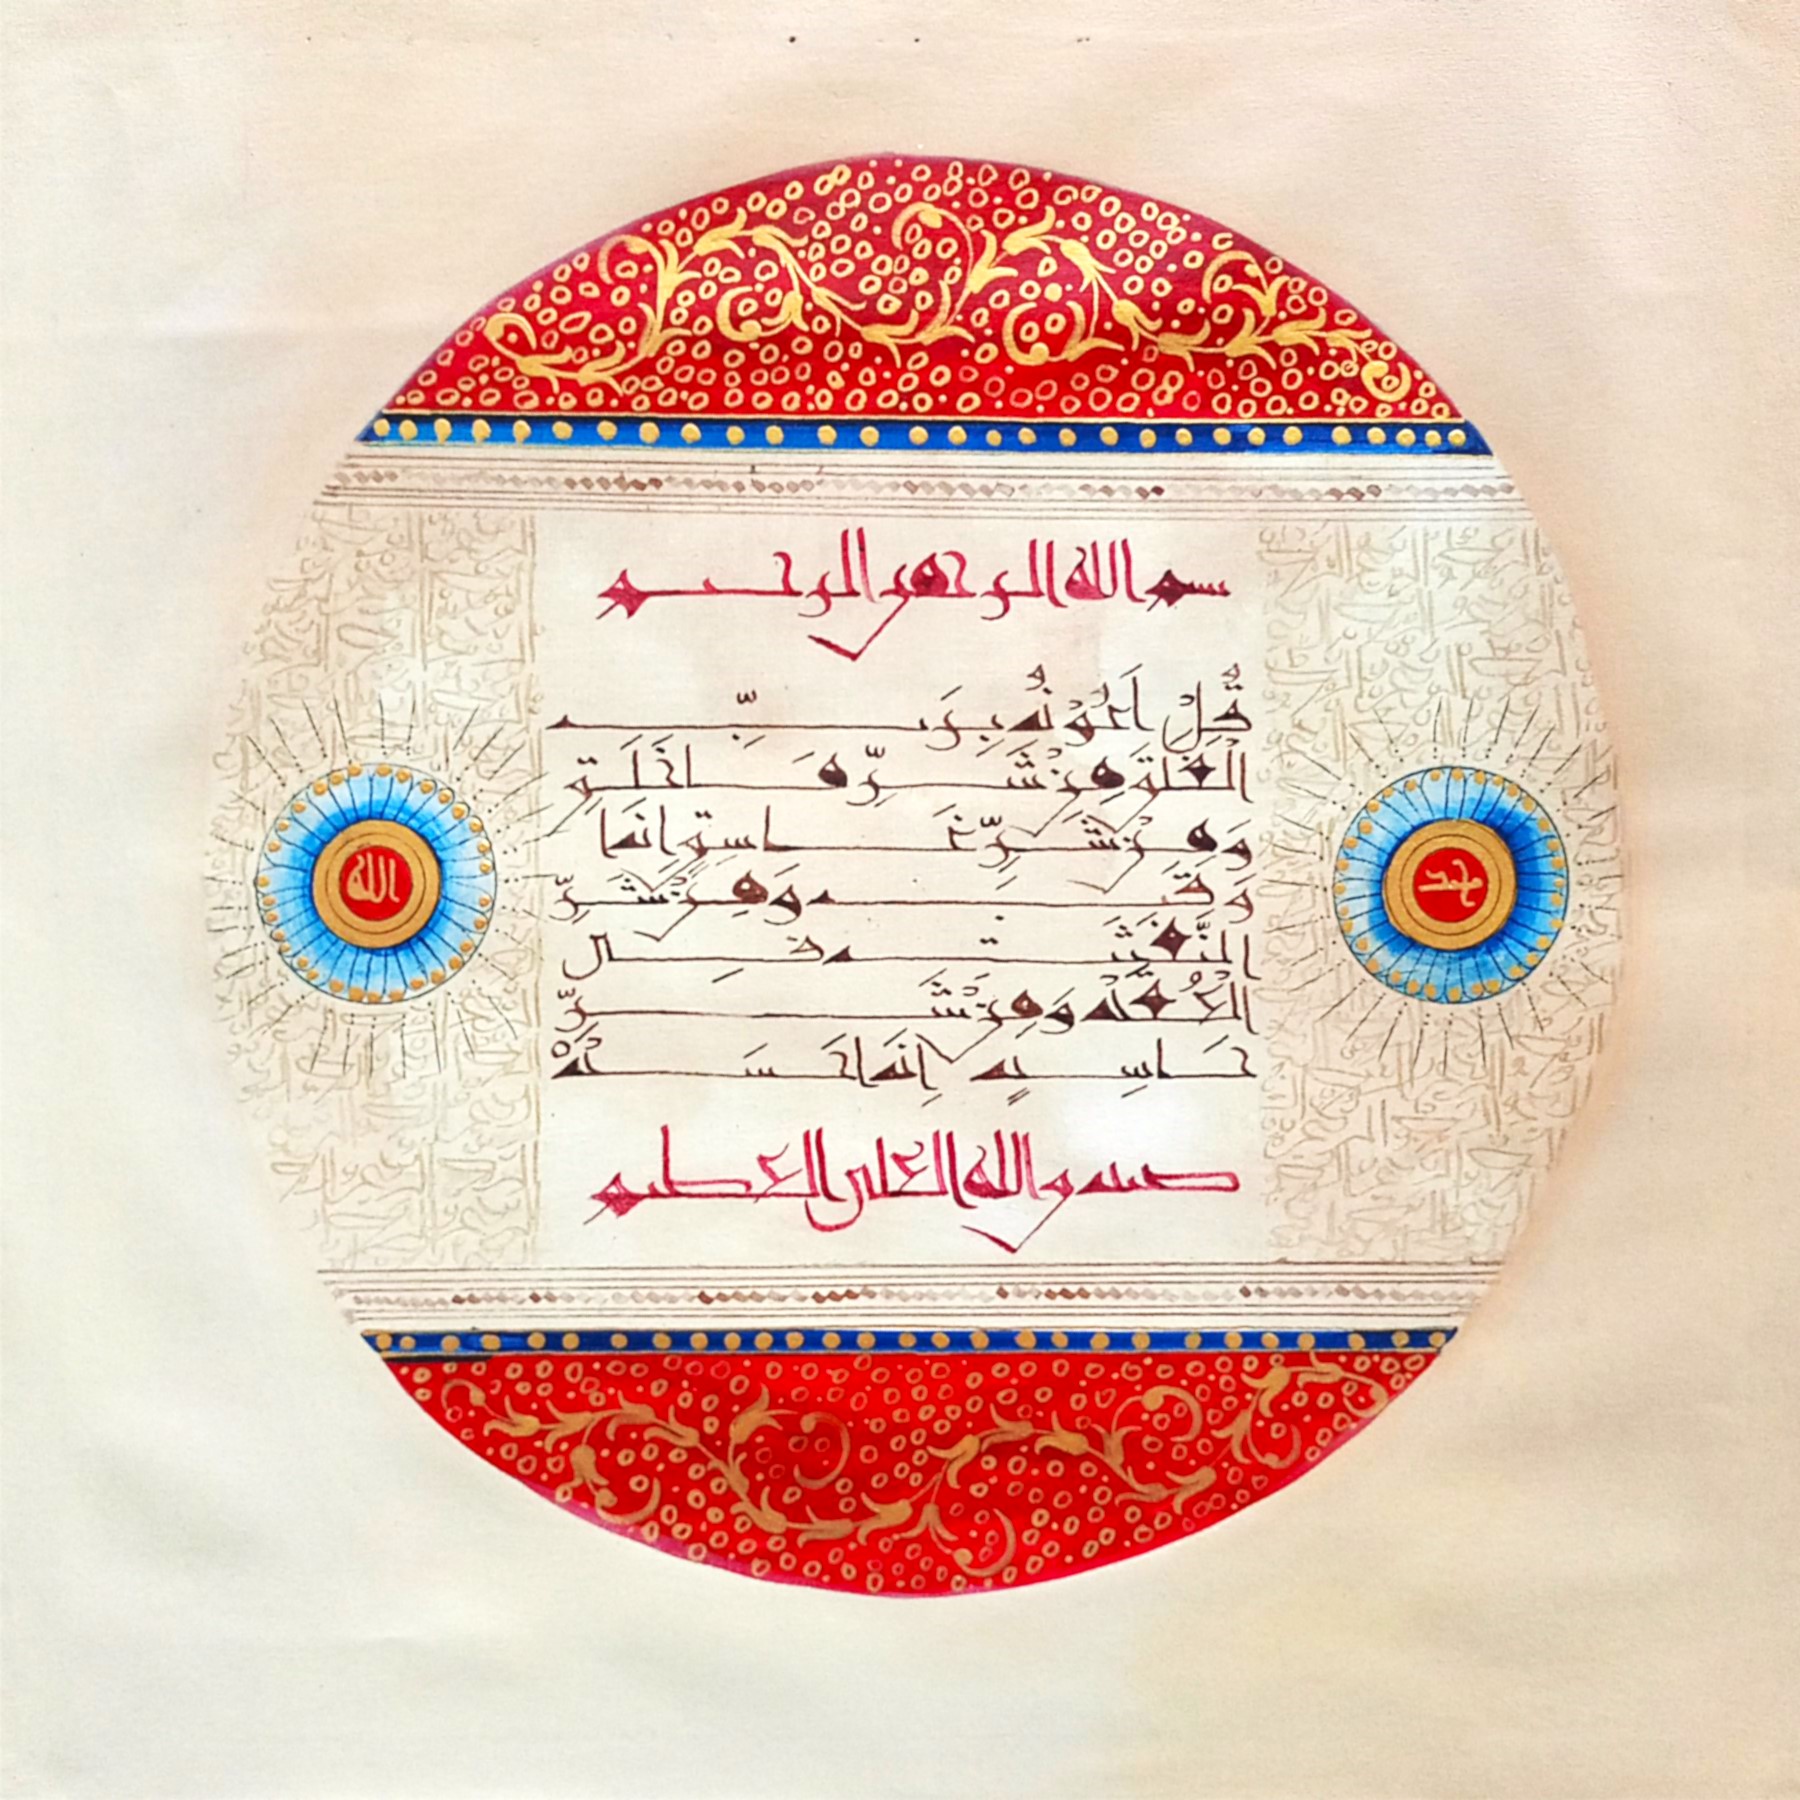 بسم الله الرحمن الرحيم
قُلْ أَعُوذُ بِرَبِّ
الْفَلَقِ مِنْ شَرِّ مَا خَلَقَ
وَمِنْ شَرِّ غَاسِقٍ إِذَا
وَقَبَ وَمِنْ شَرِّ
النَّفَّثَتِ فِي
الْعُقَدِ وَمِنْ شَرِّ
حَاسِدٍ إِذَا حَسَدَ
صدق الله العلي العظيم
محمد
الله